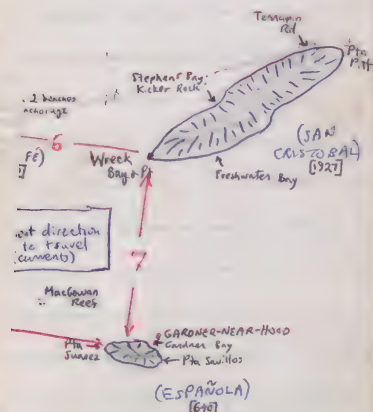 Terrapin
Rd
Pta
Pitt
Stephens Bay;
Kicker Rock
2 beaches
anchorage
6
FÉ)
Wreck
Bay & Pt
(SAN
CRISTOBAL)
[1927]
Freshwater Bay
direction
to travel
(currents)
7
MacGowan
Reef
GARDNER-NEAR-HOOD
Gardner Bay
Pta
Suarez
(ESPAÑOLA)
[640]